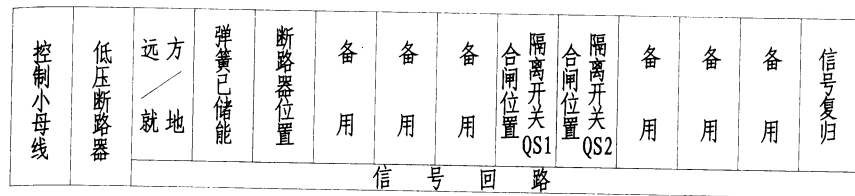 控制小母线
低压断路器
远方/就地
弹簧已储能
断路器位置
备用
备用
备用
隔离开关QS1
合闸位置
隔离开关QS2
合闸位置
备用
备用
备用
信号复归
信号回路